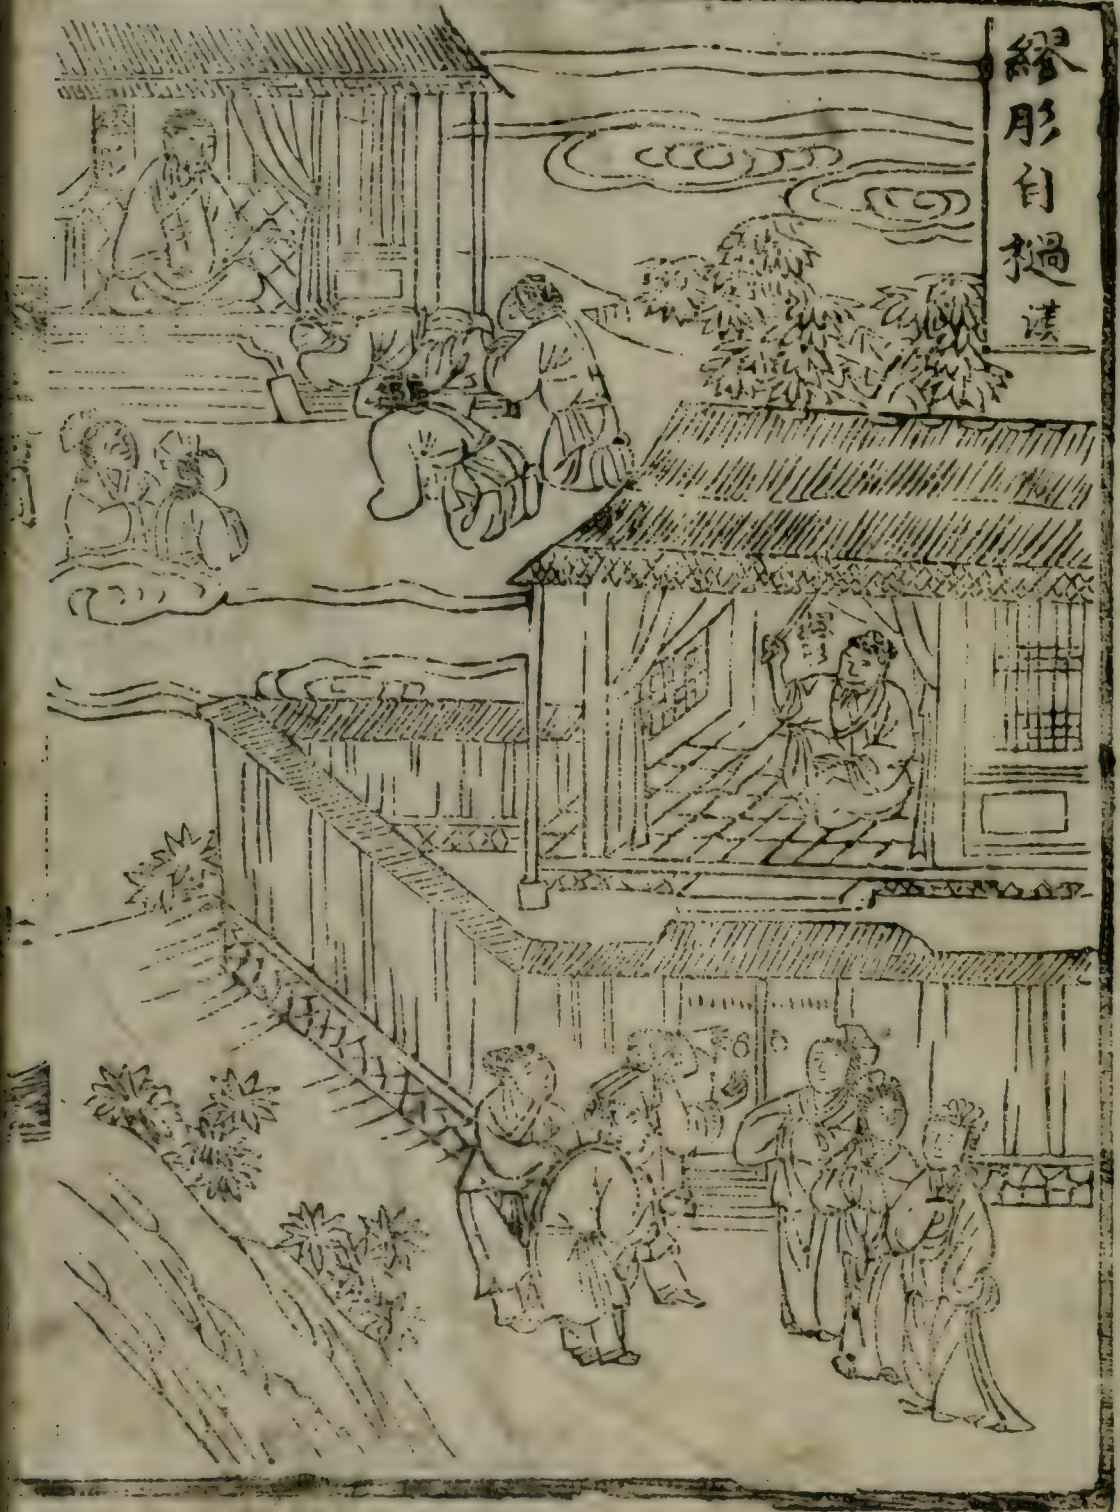 繆肜自撾漢